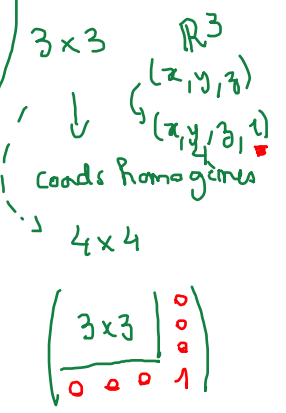 3×3 ℝ³
(x,y,z)
(x,y,z,1)
coords homogènes
4×4
3×3 0
0
0
0 0 0 1